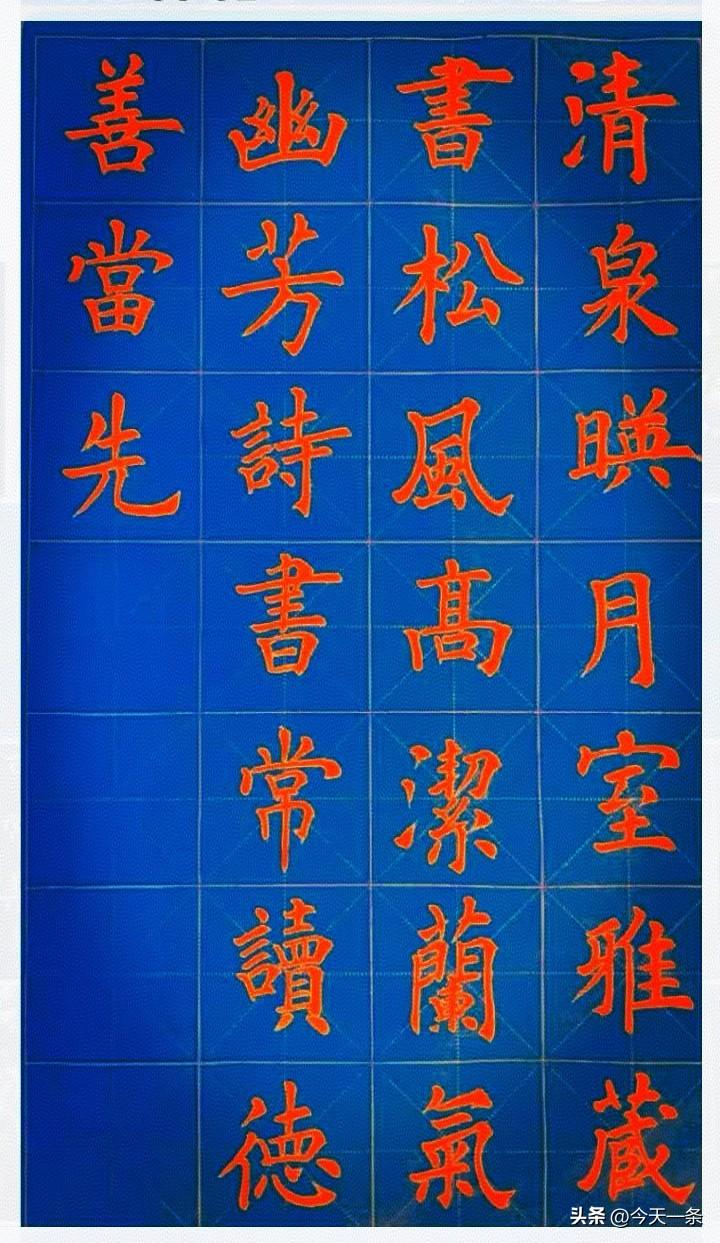 清泉暎月室雅蔵
書松風髙潔蘭氣
幽芳詩書常讀徳
善當先
头条 @今天一条